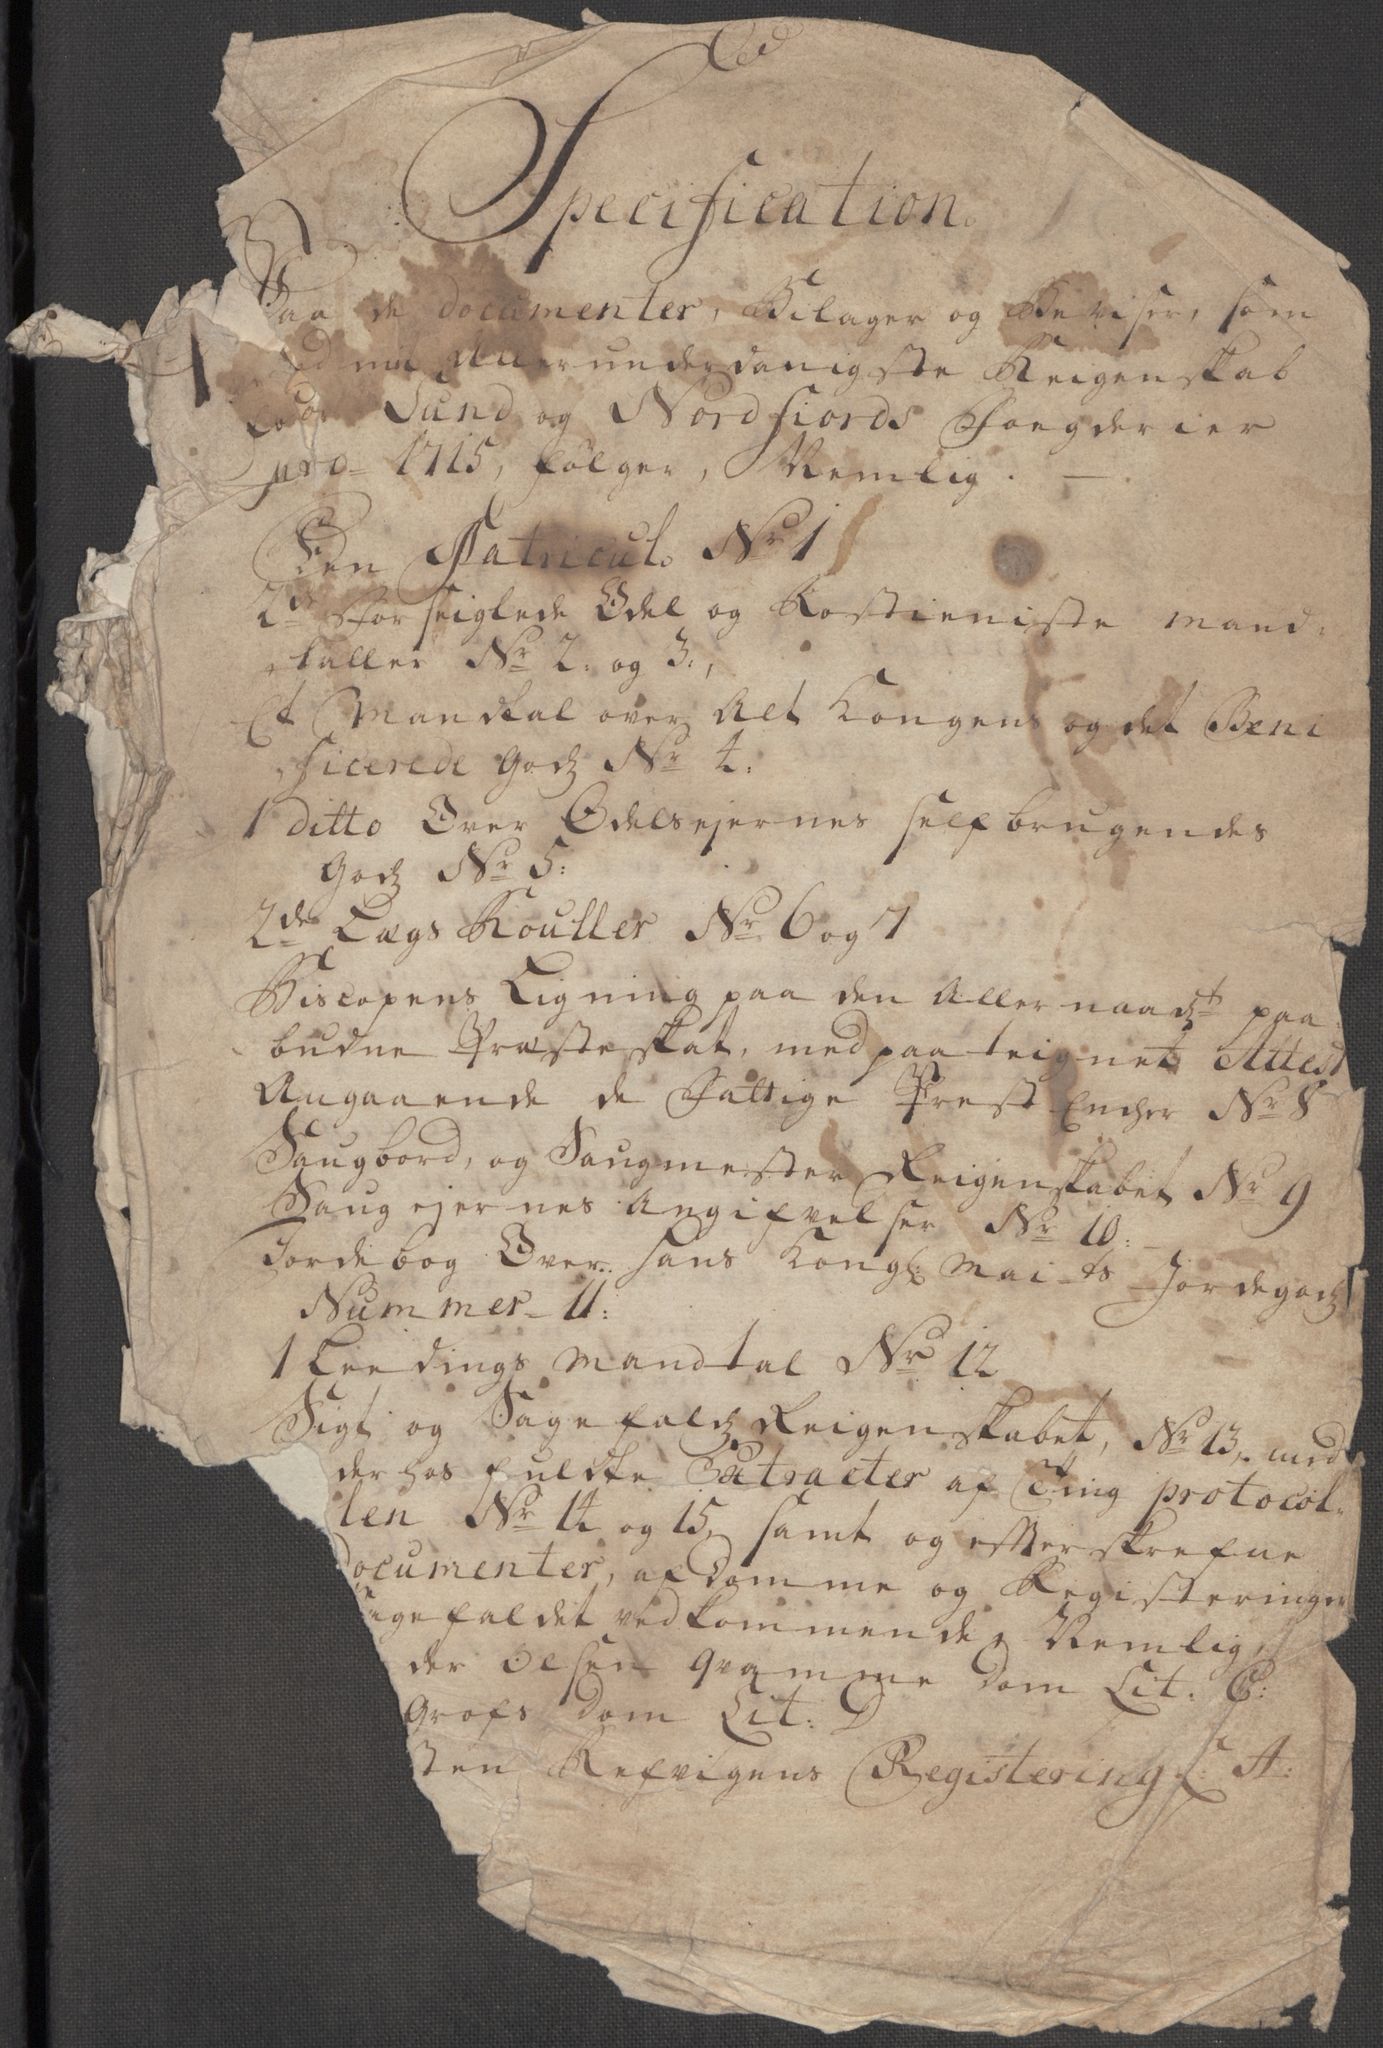 Specification
Paa de Documenter, Bilager og Beviser, som
ved mit Allerunderdanigste Reigenskab
for Sund og Nordfiords Foegderier
pro 1715, følger, Nemlig. —
Den Matricul. No 1
2de Forseiglede Odel og Rostieniste mand-
taller Nr 2: og 3:,
Et Mandtal over Alt Kongens og det Beni
ficerede Godz Nr 4:
1 ditto Over Odelsejernes selfbrugendes
Godz Nr 5:
2de Lægs Rouller Nr 6 og 7
Biscopens Ligning paa den Allernaadt paa
budne Præsteskat, med paateignet Attest
Angaaende de Fattige Prest Encher Nr 8
Saugbord, og Saugmester Reigenskabet Nr 9
Saugejernes Angifvelser Nr 10:
Jordebog Over hans Kongl: Mai-ts Jordegodz
Nummer 11:
1 Leedings Mandtal Nr 12
Sigt og Sagefaldz Reigenskabet, Nr 13, med
derhos fuldte Extracter af Ting protocol-
len Nr 14 og 15, samt og efterskrefne
Documenter, af Domme og Registeringer
Sagefaldet vedkommende, Nemlig,
der Olsen Qvamme Dom Lit: C:
Grofs Dom Lit: D
sten Refvigens Registering L: A: